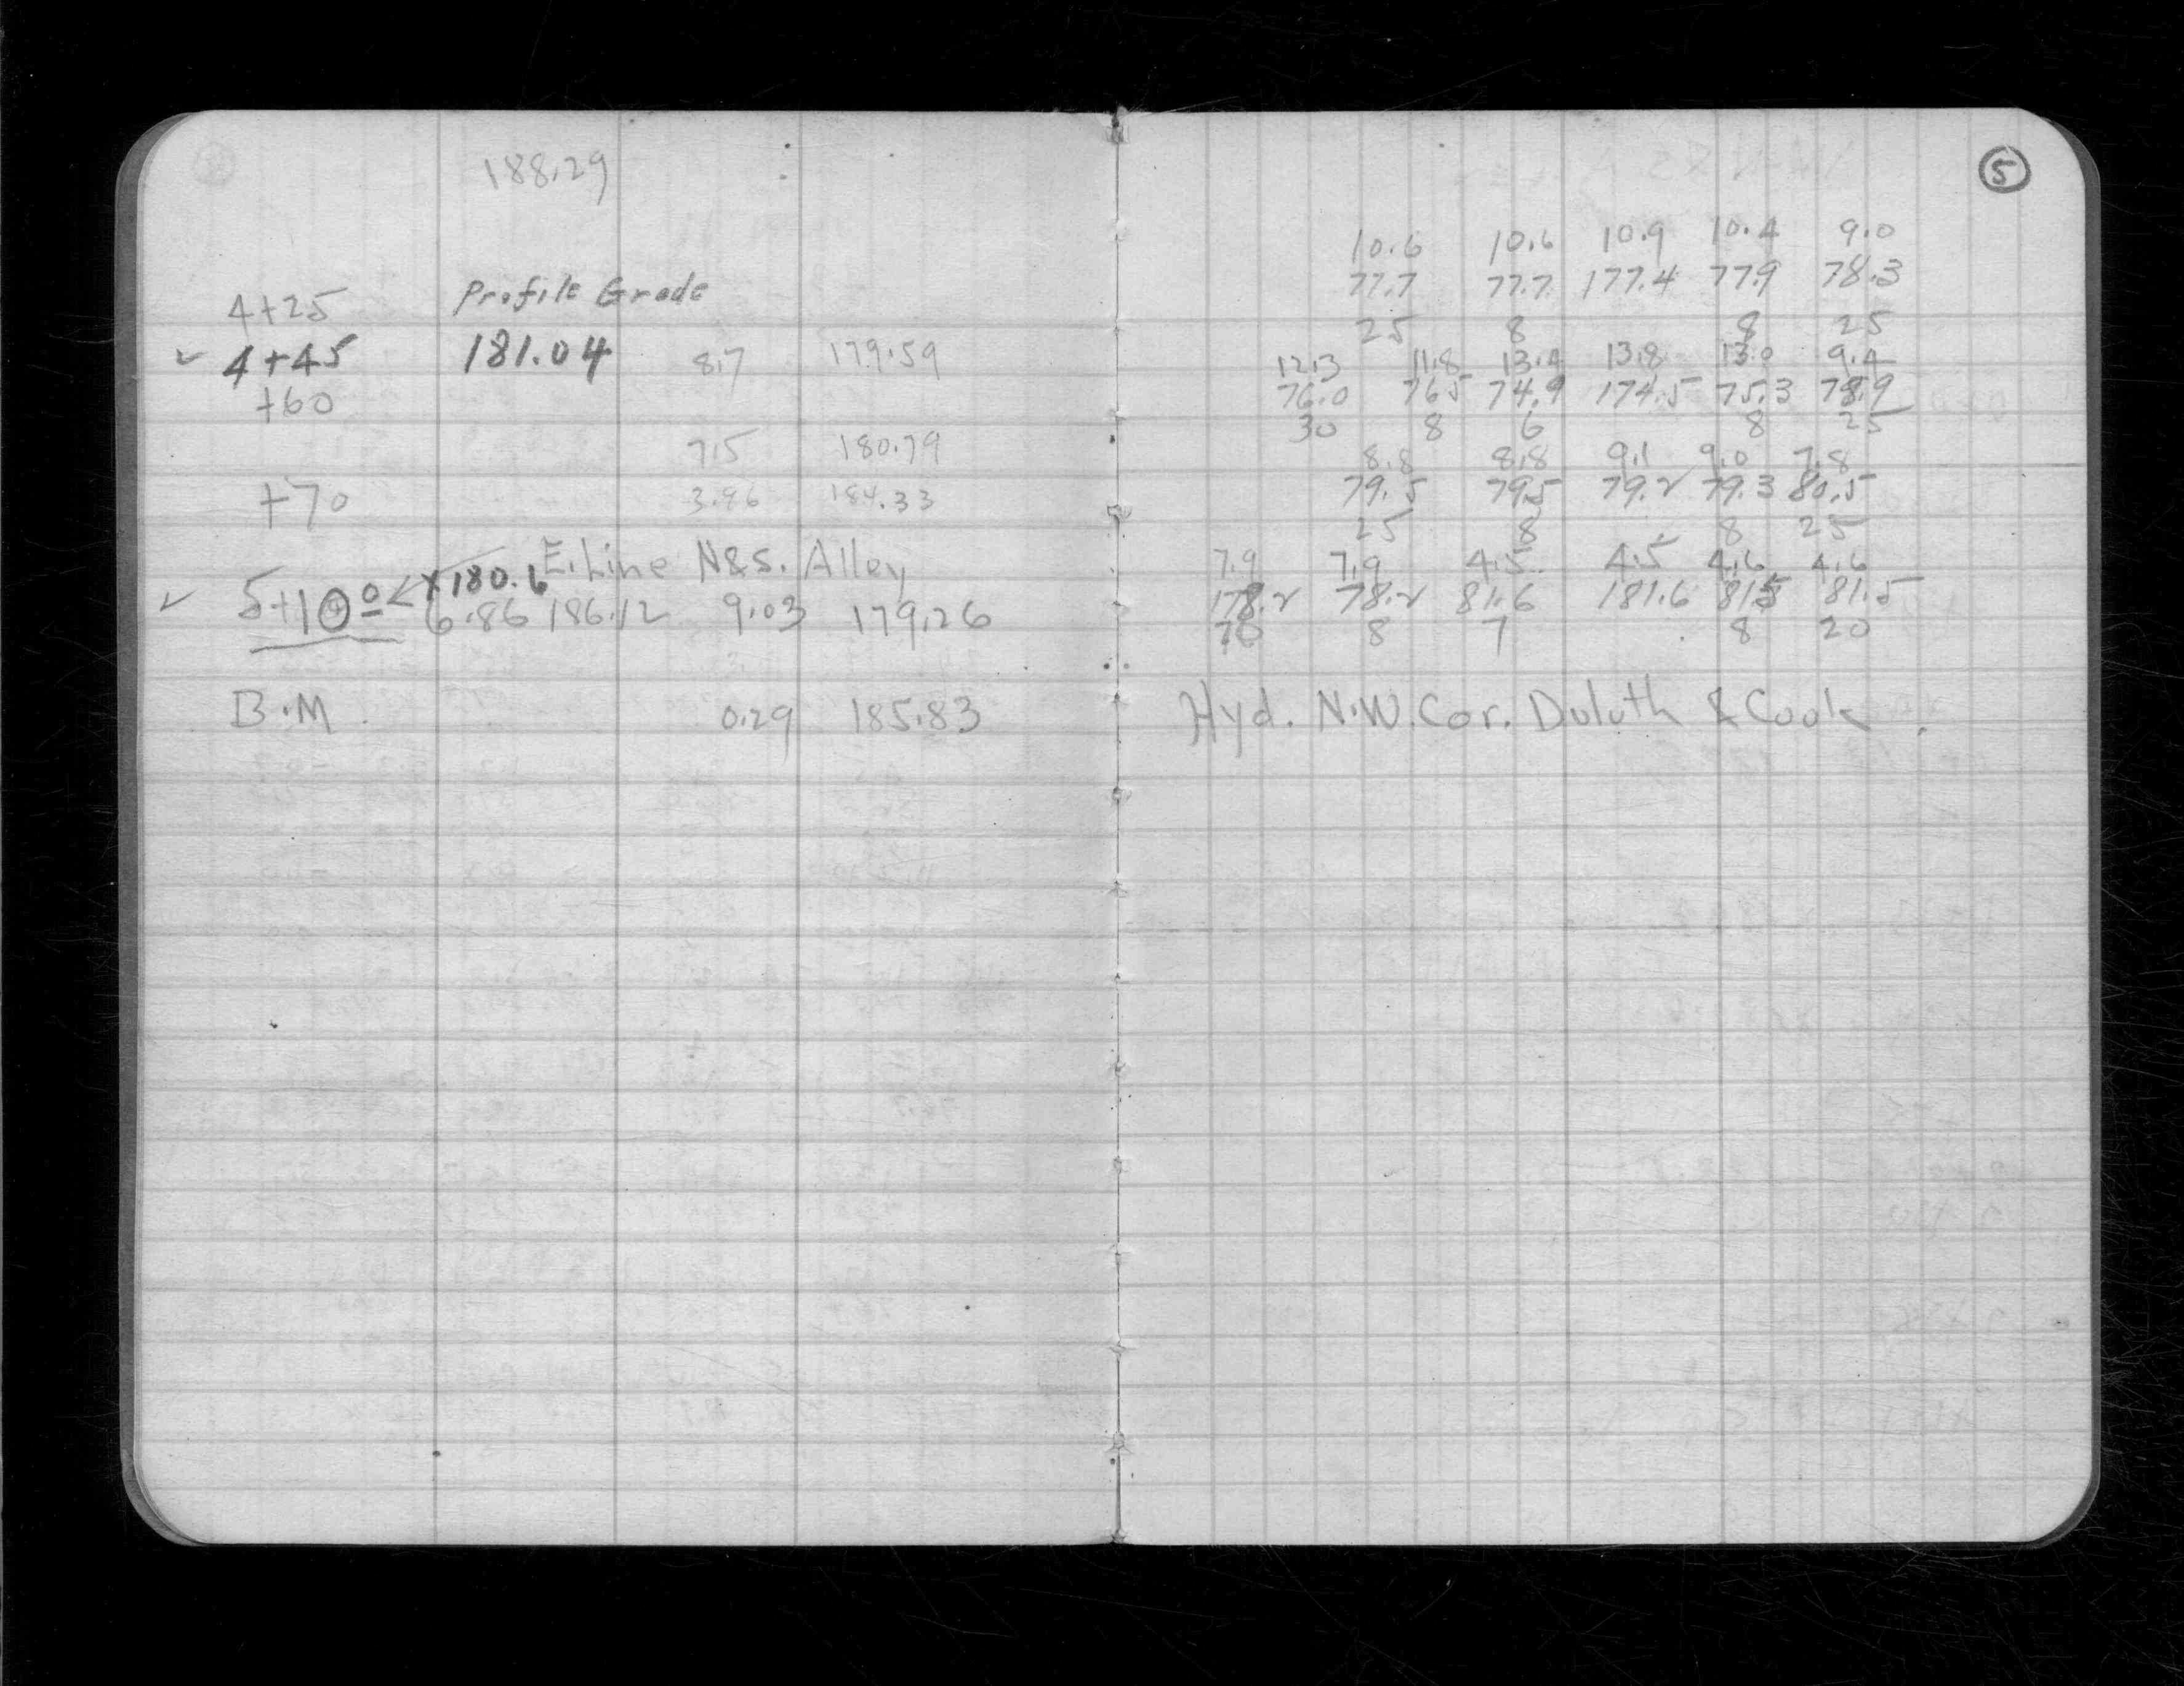 188.29
4+25 Profile Grade
✓ 4+45 181.04 8.7 179.59
+60
7.5 180.79
+70 3.96 184.33
E. Line N&S. Alley
✓ 5+10 0 ← x180.6
6.86 186.12 9.03 179.26
B.M. 0.29 185.83
5
10.6 10.6 10.9 10.4 9.0
77.7 77.7 177.4 77.9 78.3
25 8 8 25
12.3 11.8 13.4 13.8 13.0 9.4
76.0 76.5 74.9 174.5 75.3 78.9
30 8 6 8 25
8.8 8.8 9.1 9.0 7.8
79.5 79.5 79.2 79.3 80.5
25 8 8 25
7.9 7.9 4.5 4.5 4.6 4.6
178.2 78.2 81.6 181.6 81.5 81.5
8 7 8 20
Hyd. N.W. Cor. Duluth & Cook